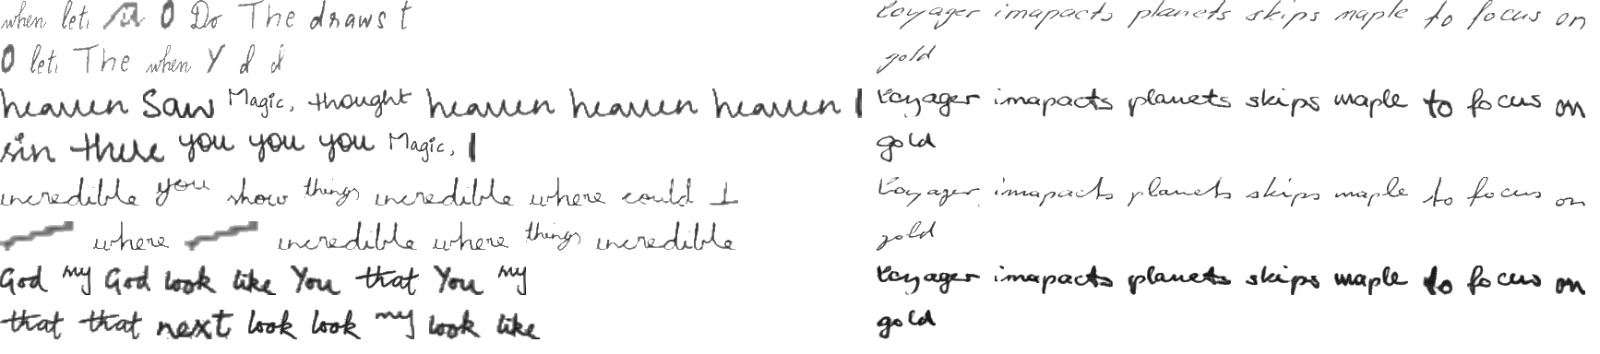 when let. 0 Do The draws t
0 let. The when Y d d
heaven Saw Magic, thought heaven heaven heaven I
sin there you you you Magic, I
incredible you show things incredible where could I
where incredible where things incredible
God my God look like You that You my
that that next look look my look like
Voyager imapacts planets skips maple to focus on
gold
Voyager imapacts planets skips maple to focus on
gold
Voyager imapacts planets skips maple to focus on
gold
Voyager imapacts planets skips maple to focus on
gold